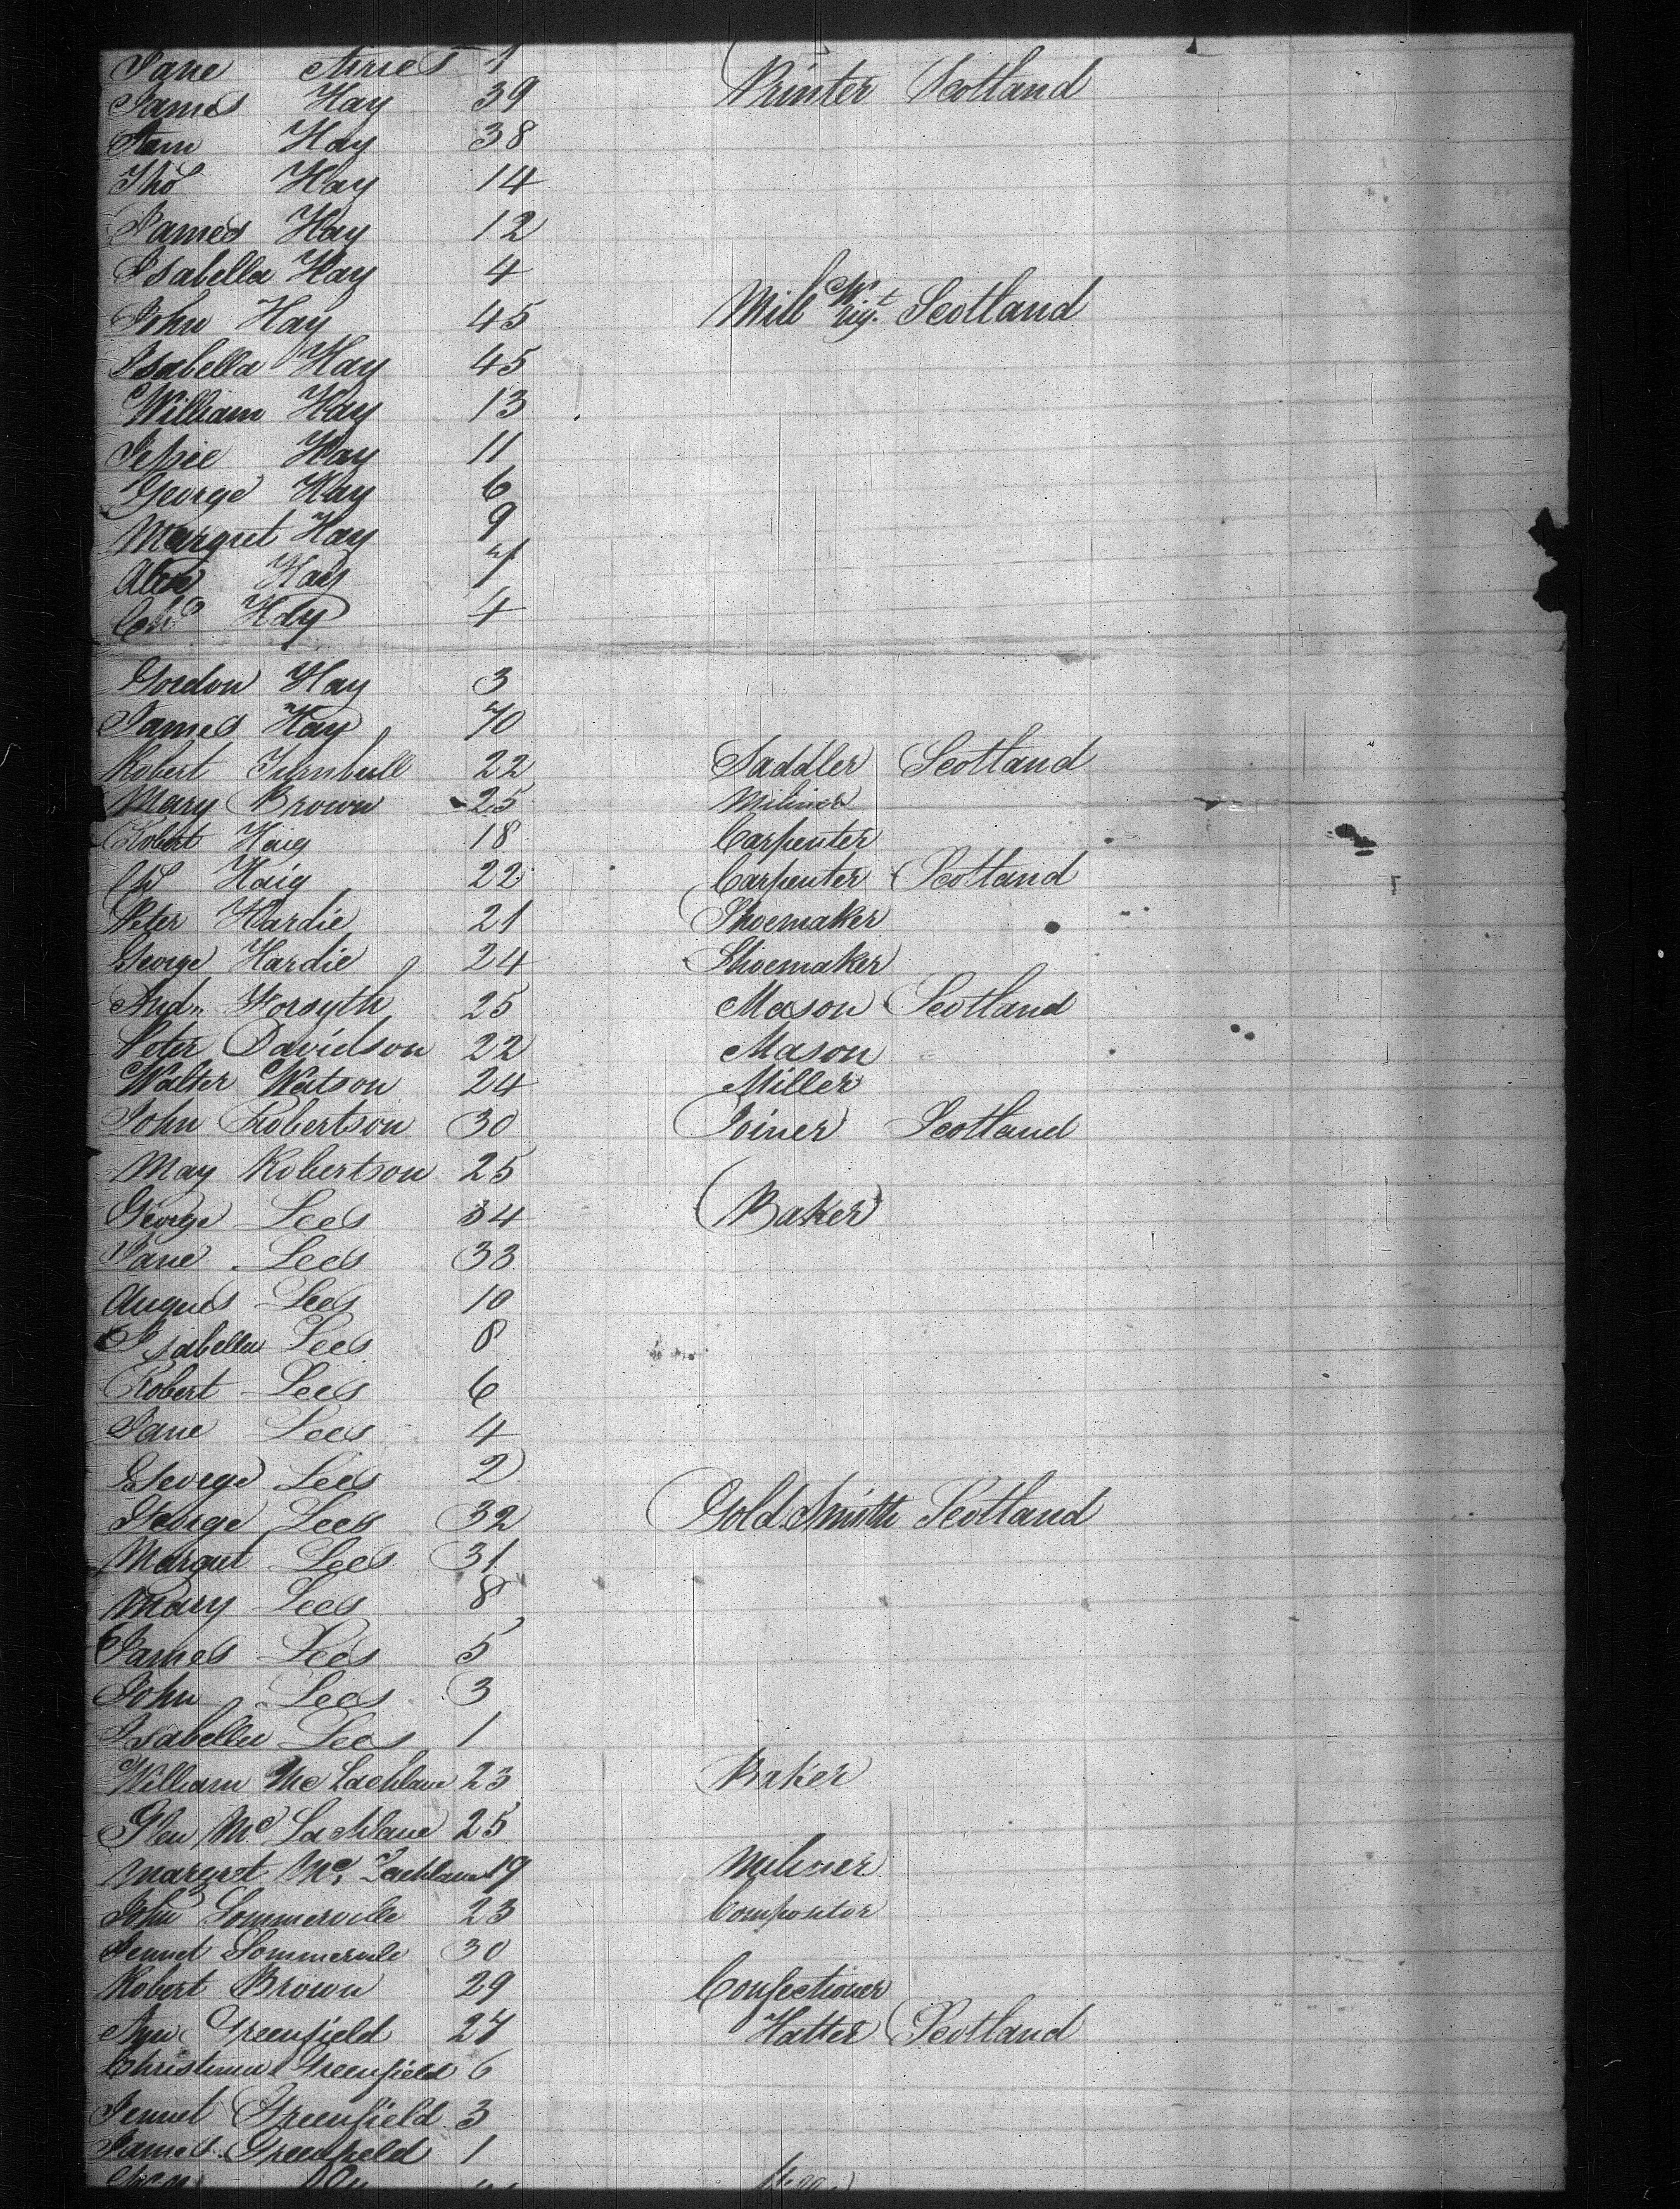 Jane 1
James Hay 39 Printer Scotland
Ann Hay 38
Tho Hay 14
James Hay 12
Isabella Hay 4
John Hay 45 Mill Wrigt Scotland
Isabella Hay 45
William Hay 13
Jessie Hay 11
George Hay 6
Margret Hay 9
Alex Hay 7
Hay 4
Gordon Hay 3
James Hay 70
Robert Turnbull 22 Saddler Scotland
Mary Brown 25 Miliner
Robert Haig 18 Carpenter
Haig 22 Carpenter Scotland
Peter Hardie 21 Shoemaker
George Hardie 24 Shoemaker
And Forsyth 25 Mason Scotland
Peter Davidson 22 Mason
Walter Watson 24 Miller
John Robertson 30 Joiner Scotland
May Robertson 25
George Lees 34 Baker
Jane Lees 33
Lees 10
Isabella Lees 8
Robert Lees 6
Jane Lees 4
George Lees 2
George Lees 32 Gold Smith Scotland
Margut Lees 31
Mary Lees 8
James Lees 5
John Lees 3
Isabella Lees 1
William Mc Lachlane 23 Baker
Mc Lachlane 25
Margret Mc Lachlane 19 Miliner
John Sommerville 23 Compositor
Jennet 30
Robert Brown 29 Confectioner
Greenfield 27 Hatter Scotland
Greenfield 6
Jennet Greenfield 3
James Greenfield 1